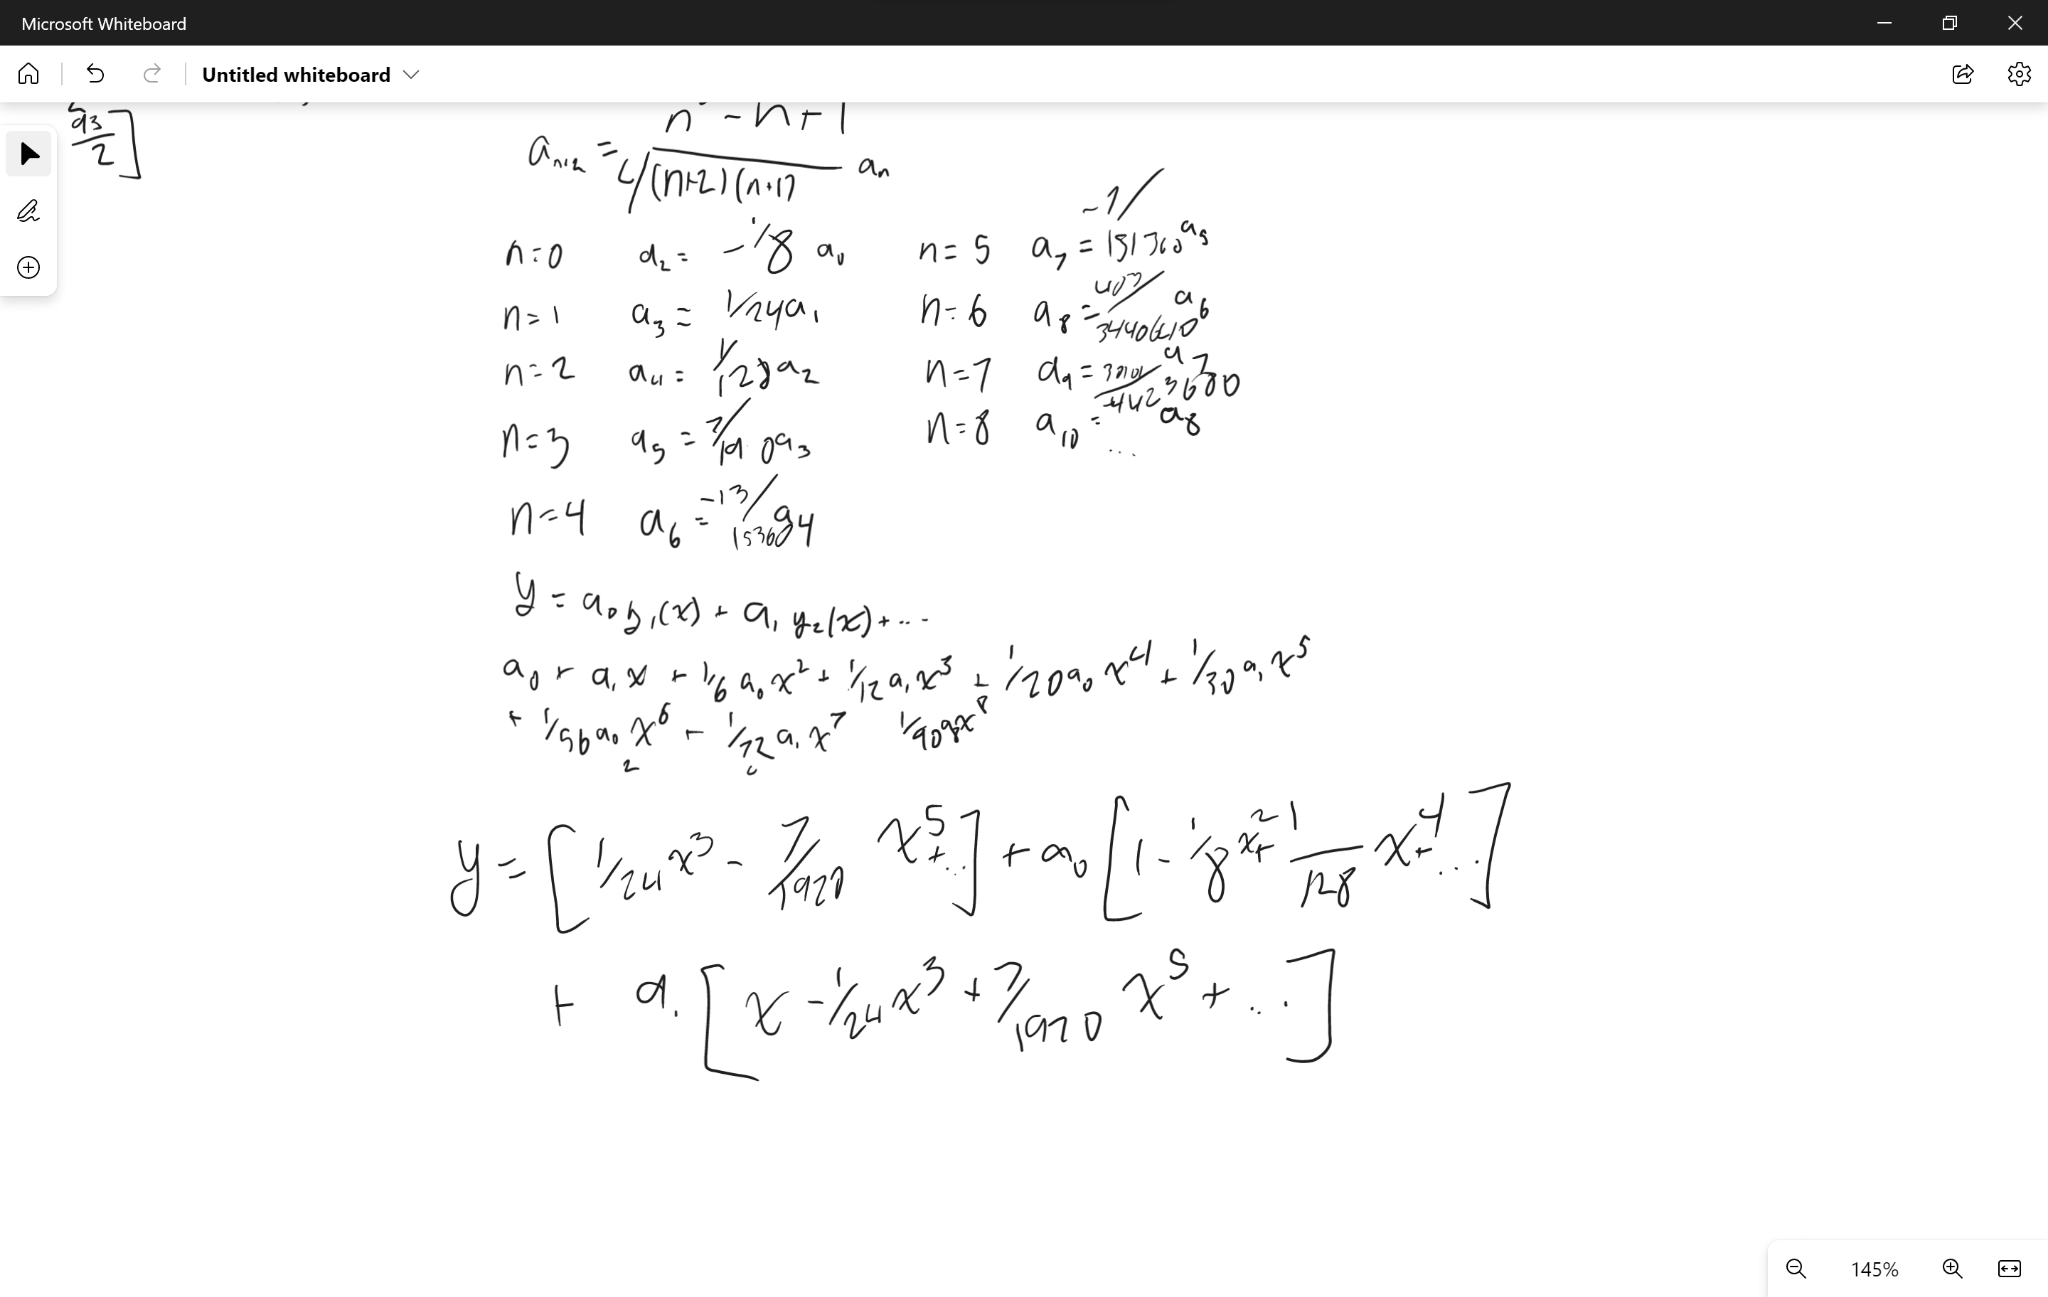 Microsoft Whiteboard
Untitled whiteboard
a3/2]
a_{n+2} = n² - n + 1 / 4(n+2)(n+1) a_n
n=0 a_2 = -1/8 a_0
n=1 a_3 = 1/24 a_1
n=2 a_4 = 1/128 a_2
n=3 a_5 = 7/1920 a_3
n=4 a_6 = -13/1536 a_4
n=5 a_7 = -1/ a_5
n=6 a_8 = 403/ a_6
n=7 a_9 = a_7
n=8 a_10 = a_8
...
y = a_0 y_1(x) + a_1 y_2(x) + ...
a_0 + a_1 x + 1/6 a_0 x² + 1/12 a_1 x³ + 1/20 a_0 x⁴ + 1/30 a_1 x⁵
+ 1/56 a_0 x⁶ + 1/72 a_1 x⁷ 1/90 x⁸
2
y = [1/24 x³ - 7/1920 x⁵ + ...] + a_0 [1 - 1/8 x² + 1/128 x⁴ + ...]
+ a_1 [x - 1/24 x³ + 7/1920 x⁵ + ...]
145%